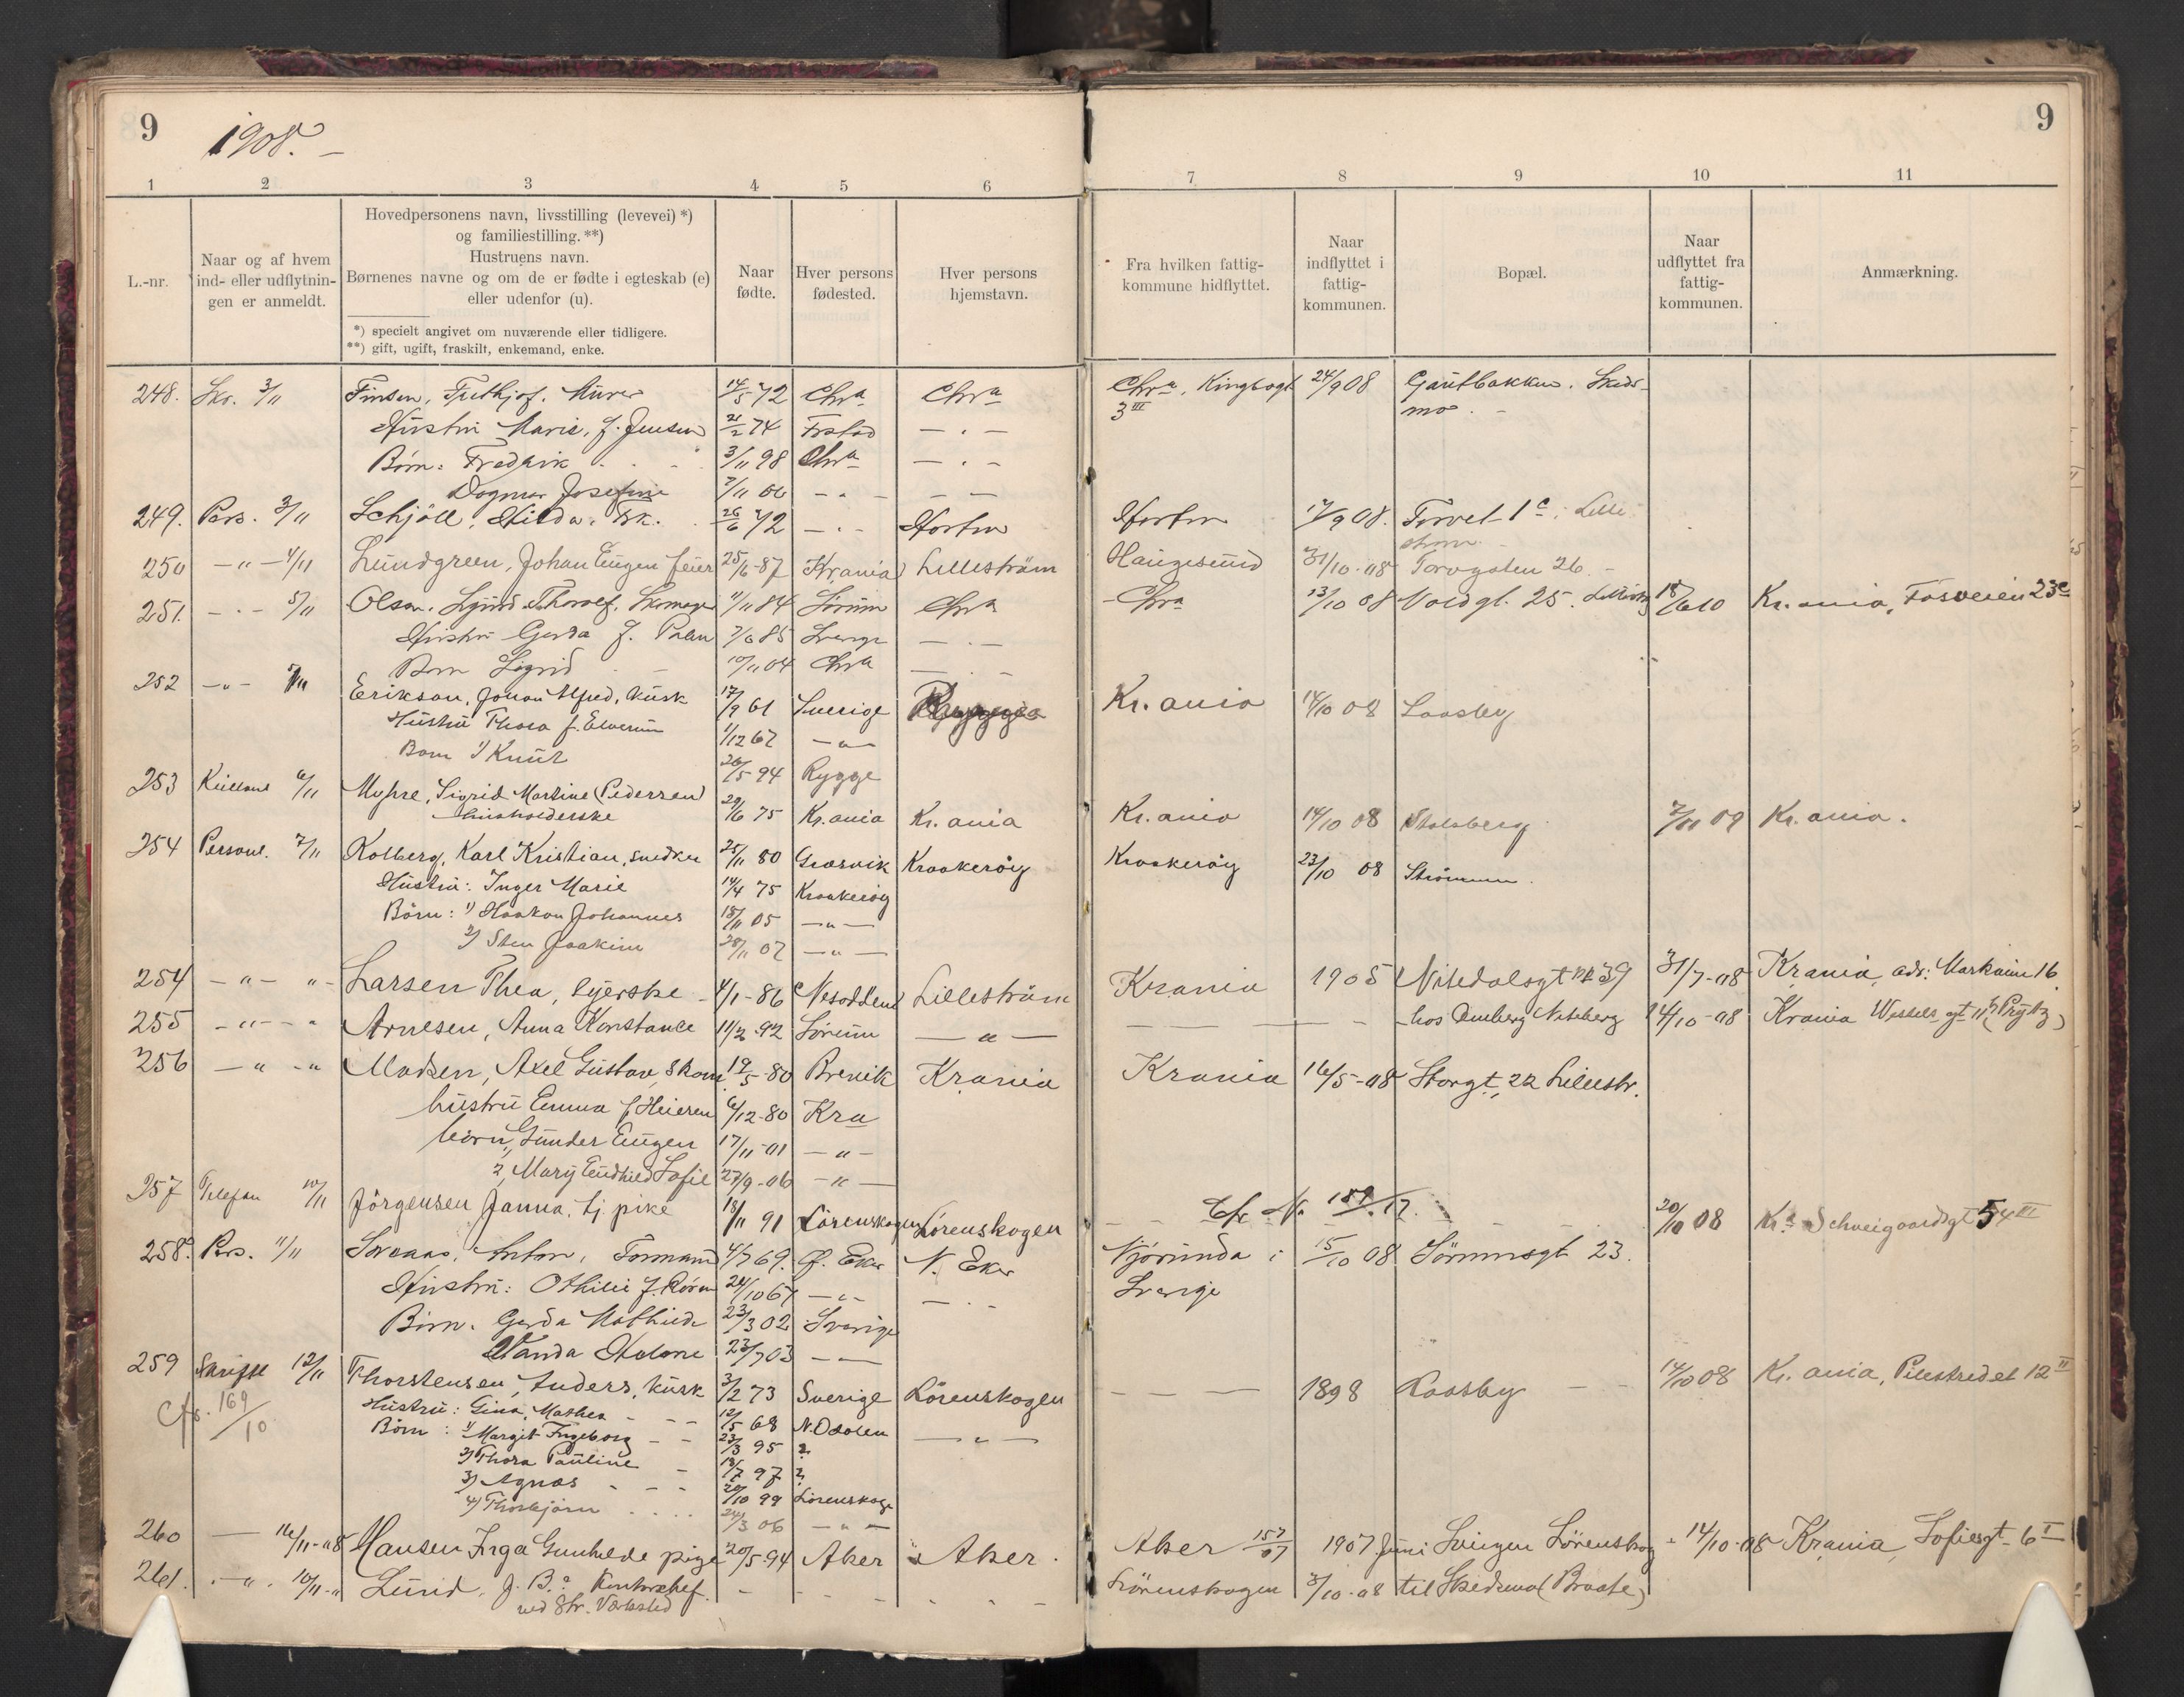 9
1908. –
9
1 2 3 4 5 6 7 8 9 10 11
L.-nr.
Naar og af hvem
ind- eller udflytnin-
gen er anmeldt.
Hovedpersonens navn, livsstilling (levevei) *)
og familiestilling. **)
Hustruens navn.
Børnenes navne og om de er fødte i egteskab (e)
eller udenfor (u).
*) specielt angivet om nuværende eller tidligere.
**) gift, ugift, fraskilt, enkemand, enke.
Naar
fødte.
Hver persons
fødested.
Hver persons
hjemstavn.
Fra hvilken fattig-
kommune hidflyttet.
Naar
indflyttet i
fattig-
kommunen.
Bopæl.
Naar
udflyttet fra
fattig-
kommunen.
Anmærkning.
248. Skr. 3/11 Finsen, Frithjof. Murer 14/5 72 Chra Chra Chra. Kingosgt 24/9 08 Gautbakken. Skeds-
3 III mo. –
Hustru Marie, f. Jensen 21/2 74 Frstad – . –
Børn: Fredrik 3/11 98 Chra – . –
Dagmar Josefine 7/11 06 – . – – –
249. Pers. 3/11 Schjöll, Hilda, Frk. 26/6 72 – . – Horten Horten 17/9 08. Torvet 1c, Lille
strøm. –
250 – " – 4/11 Lundgreen, Johan Eugen feier 25/6-87 Kr.ania Lilleström Haugesund 31/10-08 Torvgaten 26. –
251. – . – 5/11 Olsen, Sigurd Thorolf, Skomager 11/11 84 Sörum Chra Chra 13/10 08 Voldgt. 25. 18/6 10 Kr.ania, Fosveien 23c
Hustru Gerda f. Palm 7/6 85 Sverge – . –
Barn Sigrid 10/11 04 Chra – . –
252 – " – 5/11 Erikson, Johan Alfred, kusk 17/9 61 Sverige Kr.ania 14/10 08 Laasby
Hustru Thora f. Elverum 1/12 67 – " –
Barn 1) Knut 26/5 94 Rygge
253 6/11 Myhre, Sigrid Martine (Pedersen) 29/6 75 Kr.ania Kr.ania Kr.ania 14/10 08 Stalsberg 7/11 09 Kr.ania.
husholderske
254 Personl. 7/11 Kolberg, Karl Kristian, snedker 25/11 80 Græsvik Kraakeröy Kraakeröy 23/10 08 Strömmen.
Hustru: Inger Marie 14/4 75 Kraakeröy
Börn: 1) Haakon Johannes 18/11 05 – " –
2) Sten Joakim 28/11 07 – " –
254 – " – " – Larsen Thea, syerske – 4/1-86 Nesodden Lilleström Krania 1905 Nitedalsgt no 39 31/7-08 Krania, adr: Markveien 16.
255 – " – " Arnesen, Anna Konstance 11/2-92 Sörum – " – – – – hos Amberg Nitsberg 14/10-08 Krania Wessels gt 11 b (Prytz)
256 – " – " Madsen, Axel Gustav, Skom. 19/5-80 Brevik Krania Krania 16/5-08 Storgt. 22 Lillestr.
hustru Emma f Heieren 6/12-80 Kra
börn, Gunder Eugen 17/11-01 – " –
2, Mary Sofie 27/9-06 – " –
257 Telefon 10/11 Jörgensen Janna, tj. pike 18/11 91 Lörenskogen Lörenskogen Cfr No 20/10 08 Kra Schweigaardsgt 54 III
258. Pers. 11/11 Anton, Formand 4/7 69. Ø. Eker N. Eker i 15/10 08 Sörumsgt. 23.
Hustru: Othilie f. 24/10 67 – " – – . – Sverige
Børn. Gerda Mathilde 23/3 02 Sverige
Wanda Helene 23/7 03 – –
259 Skriftl 12/11 Thorstensen, Anders, kusk 3/2 73 Sverige Lörenskogen – – – 1898 Laasby – – 14/10 08 Kr.ania, Pilestredet 12 II
Cfr. 169/10 Hustru: Gina, Mathea – – 12/5 68 N. Odalen
Börn: 1) Margit Ingeborg – – 23/3 95 ? – " –
2) Thora Pauline – 18/7 97 ?
3) Agnes – – – 20/10 99 Lörenskog
4) Thorbjörn . . . . 24/3 06 – " –
260 – 16/11-08 Hansen Inga Gunhilde pige 20/5-94 Aker Aker. Aker 157/07 1907 Juni Svingen Lörenskog – 14/10-08 Krania, Sofiesgt. 6 I
261. – " – 10/11-" Lund, J. B. Kontorchef. – – – – – – Lörenskogen 3/10-08 til Skedsmo (Braate)
ved Str. Værksted